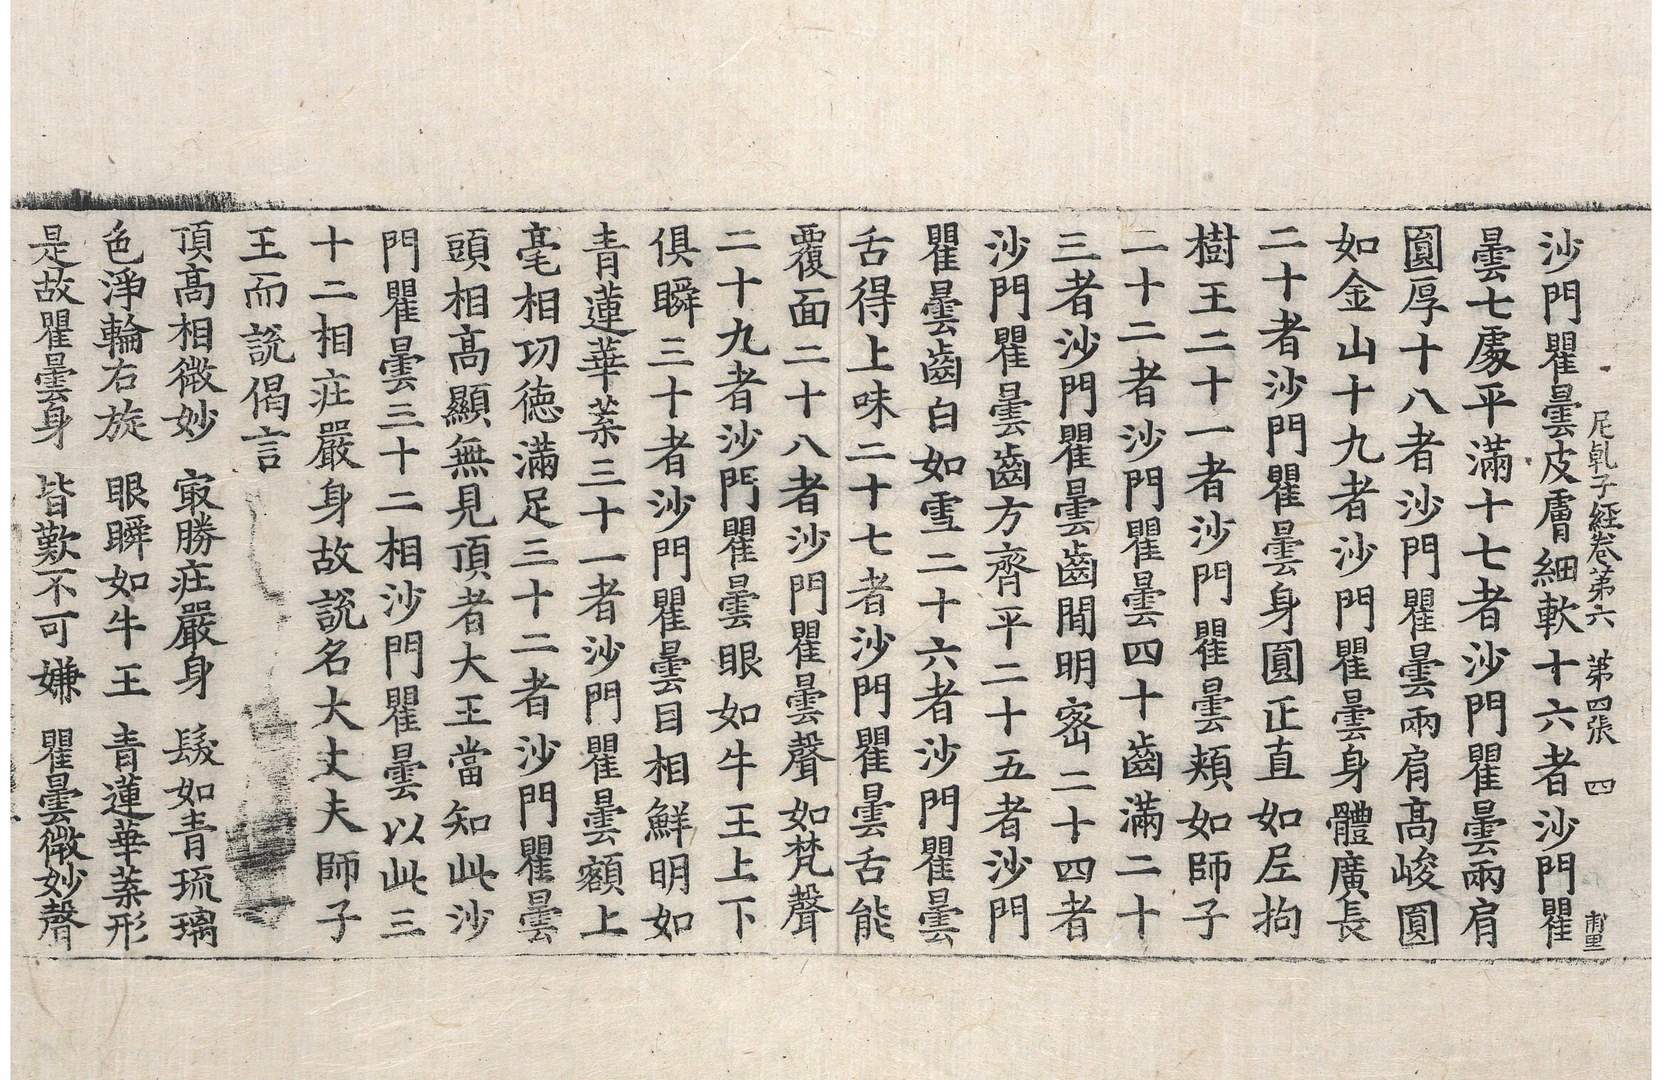 尼乹子經卷第六 第四張 四
沙門瞿曇皮膚細軟十六者沙門瞿
曇七處平滿十七者沙門瞿曇兩肩
圓厚十八者沙門瞿曇兩肩髙峻圓
如金山十九者沙門瞿曇身體廣長
二十者沙門瞿曇身圓正直如尼拘
樹王二十一者沙門瞿曇頰如師子
二十二者沙門瞿曇四十齒滿二十
三者沙門瞿曇齒間明密二十四者
沙門瞿曇齒方齊平二十五者沙門
瞿曇齒白如雪二十六者沙門瞿曇
舌得上味二十七者沙門瞿曇舌能
覆面二十八者沙門瞿曇聲如梵聲
二十九者沙門瞿曇眼如牛王上下
俱瞬三十者沙門瞿曇目相鮮明如
青蓮華葉三十一者沙門瞿曇額上
毫相功徳滿足三十二者沙門瞿曇
頭相髙顯無見頂者大王當知此沙
門瞿曇三十二相沙門瞿曇以此三
十二相莊嚴身故說名大丈夫師子
王而說偈言
頂髙相微妙 㝡勝莊嚴身 髮如青琉璃
色淨輪右旋 眼瞬如牛王 青蓮華葉形
是故瞿曇身 皆歎不可嫌 瞿曇微妙聲